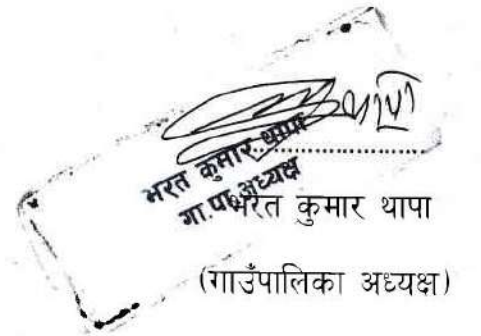 थापा
भरत कुमार थापा
गा.पा.अध्यक्ष
भरत कुमार थापा
(गाउँपालिका अध्यक्ष)